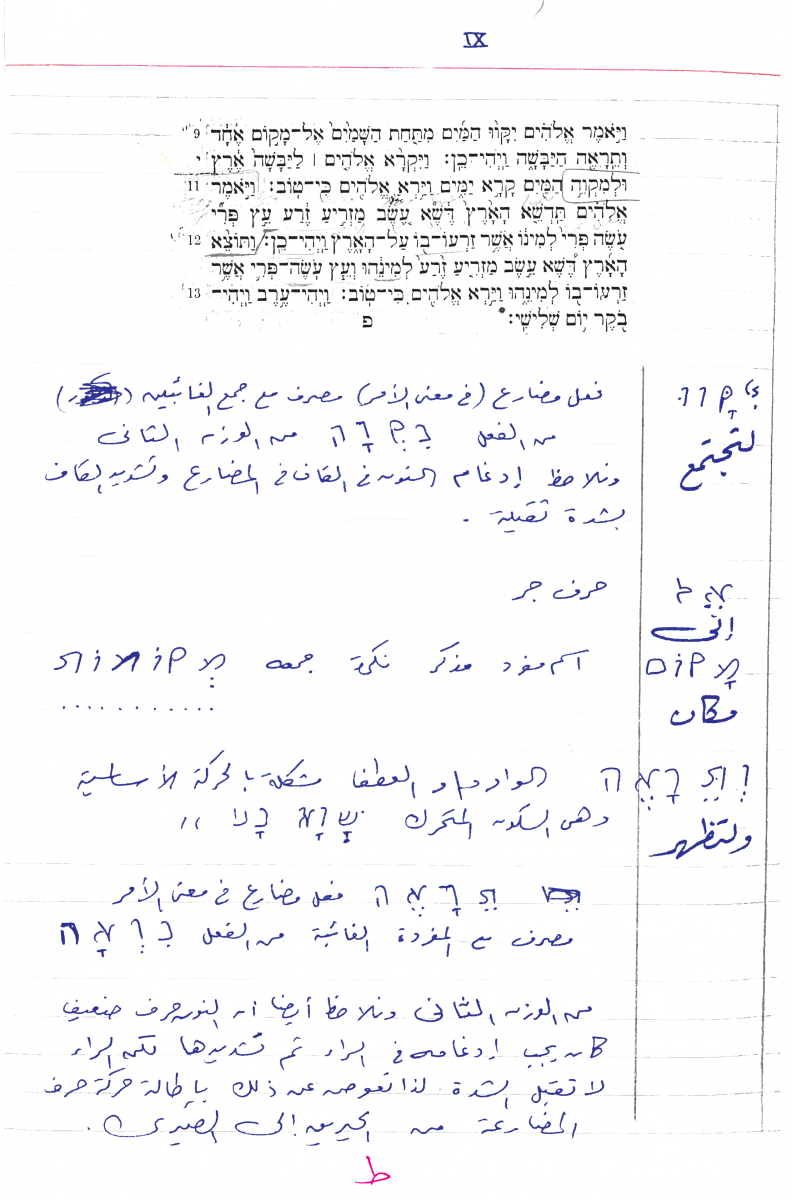 IX
9 וַיֹּאמֶר אֱלֹהִים יִקָּווּ הַמַּיִם מִתַּחַת הַשָּׁמַיִם אֶל־מָקוֹם אֶחָד
וְתֵרָאֶה הַיַּבָּשָׁה וַיְהִי־כֵן׃ וַיִּקְרָא אֱלֹהִים ׀ לַיַּבָּשָׁה אֶרֶץ י
11 וּלְמִקְוֵה הַמַּיִם קָרָא יַמִּים וַיַּרְא אֱלֹהִים כִּי־טוֹב׃ וַיֹּאמֶר
אֱלֹהִים תַּדְשֵׁא הָאָרֶץ דֶּשֶׁא עֵשֶׂב מַזְרִיעַ זֶרַע עֵץ פְּרִי
12 עֹשֶׂה פְּרִי לְמִינוֹ אֲשֶׁר זַרְעוֹ־בוֹ עַל־הָאָרֶץ וַיְהִי־כֵן׃ וַתּוֹצֵא
הָאָרֶץ דֶּשֶׁא עֵשֶׂב מַזְרִיעַ זֶרַע לְמִינֵהוּ וְעֵץ עֹשֶׂה־פְּרִי אֲשֶׁר
13 זַרְעוֹ־בוֹ לְמִינֵהוּ וַיַּרְא אֱלֹהִים כִּי־טוֹב׃ וַיְהִי־עֶרֶב וַיְהִי־
בֹקֶר יוֹם שְׁלִישִׁי׃ * פ
יִקָּווּ فعل مضارع (في معنى الأمر) مصرف مع جمع الغائبين
لتجتمع من الفعل נִקְוָה من الوزن الثاني
ونلاحظ إدغام النون في القاف في المضارع وتشديد القاف
بشدة ثقيلة .
אֶל حرف جر
إلى
מָקוֹם اسم مفرد مذكر نكرة جمعه מְקוֹמוֹת
مكان ............
וְתֵרָאֶה الواو واو العطف مشكلة بالحركة الأساسية
ولتظهر وهى السكون المتحرك שְׁוָא נָע ,,
תֵרָאֶה فعل مضارع في معنى الأمر
مصرف مع المفردة الغائبة من الفعل נִרְאָה
من الوزن الثاني ونلاحظ أيضا أن النون حرف ضعيف
كان يجب إدغامه في الراء ثم تشديدها لكن الراء
لا تقبل الشدة لذا نعوض عن ذلك بإطالة حركة حرف
المضارعة من الحيريق إلى الصيرى .
ط